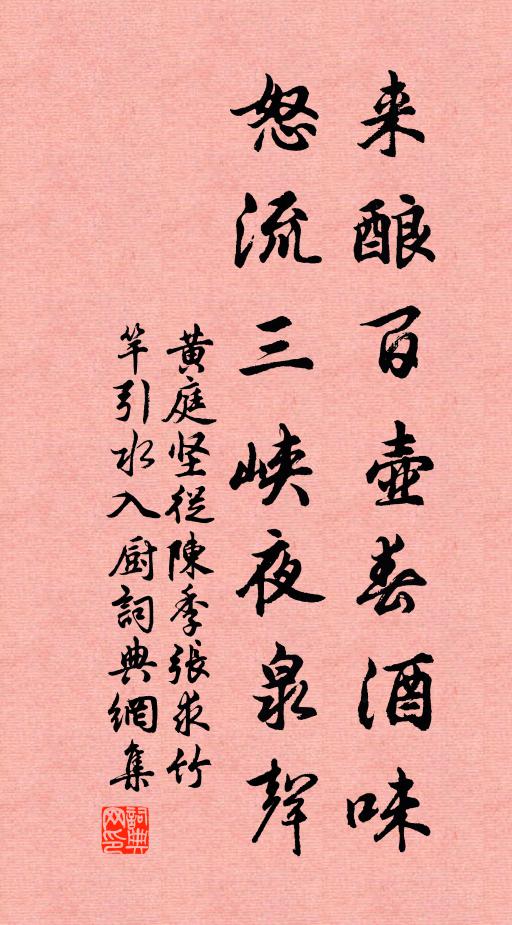 来酿百壶春酒味
怒流三峡夜泉声
黄庭坚从陈季张求竹
竿引水入厨词典网集
词典
网印